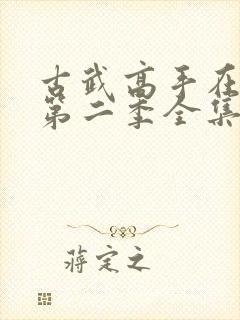 古武高手在
第二季全集
蒋定之